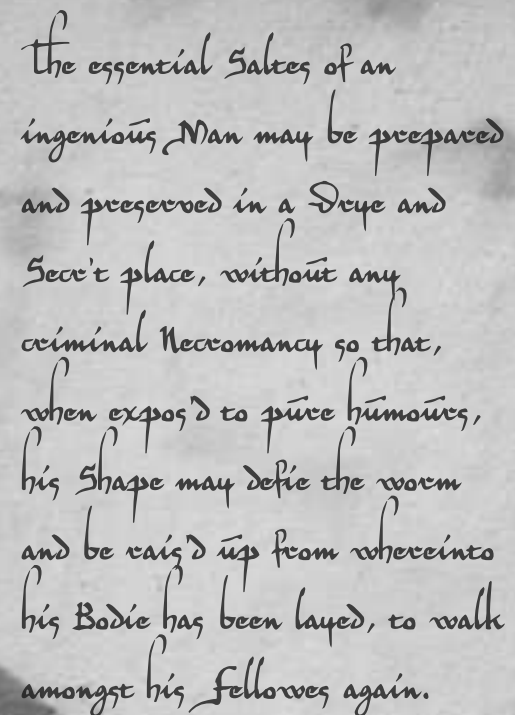 The essential Saltes of an
ingenioūs Man may be prepared
and preserved in a Drye and
Secr't place, withoūt any
criminal Necromancy so that,
when expos'd to pūre hūmoūrs,
his Shape may defie the worm
and be rais'd ūp from whereinto
his Bodie has been layed, to walk
amongst his Fellowes again.